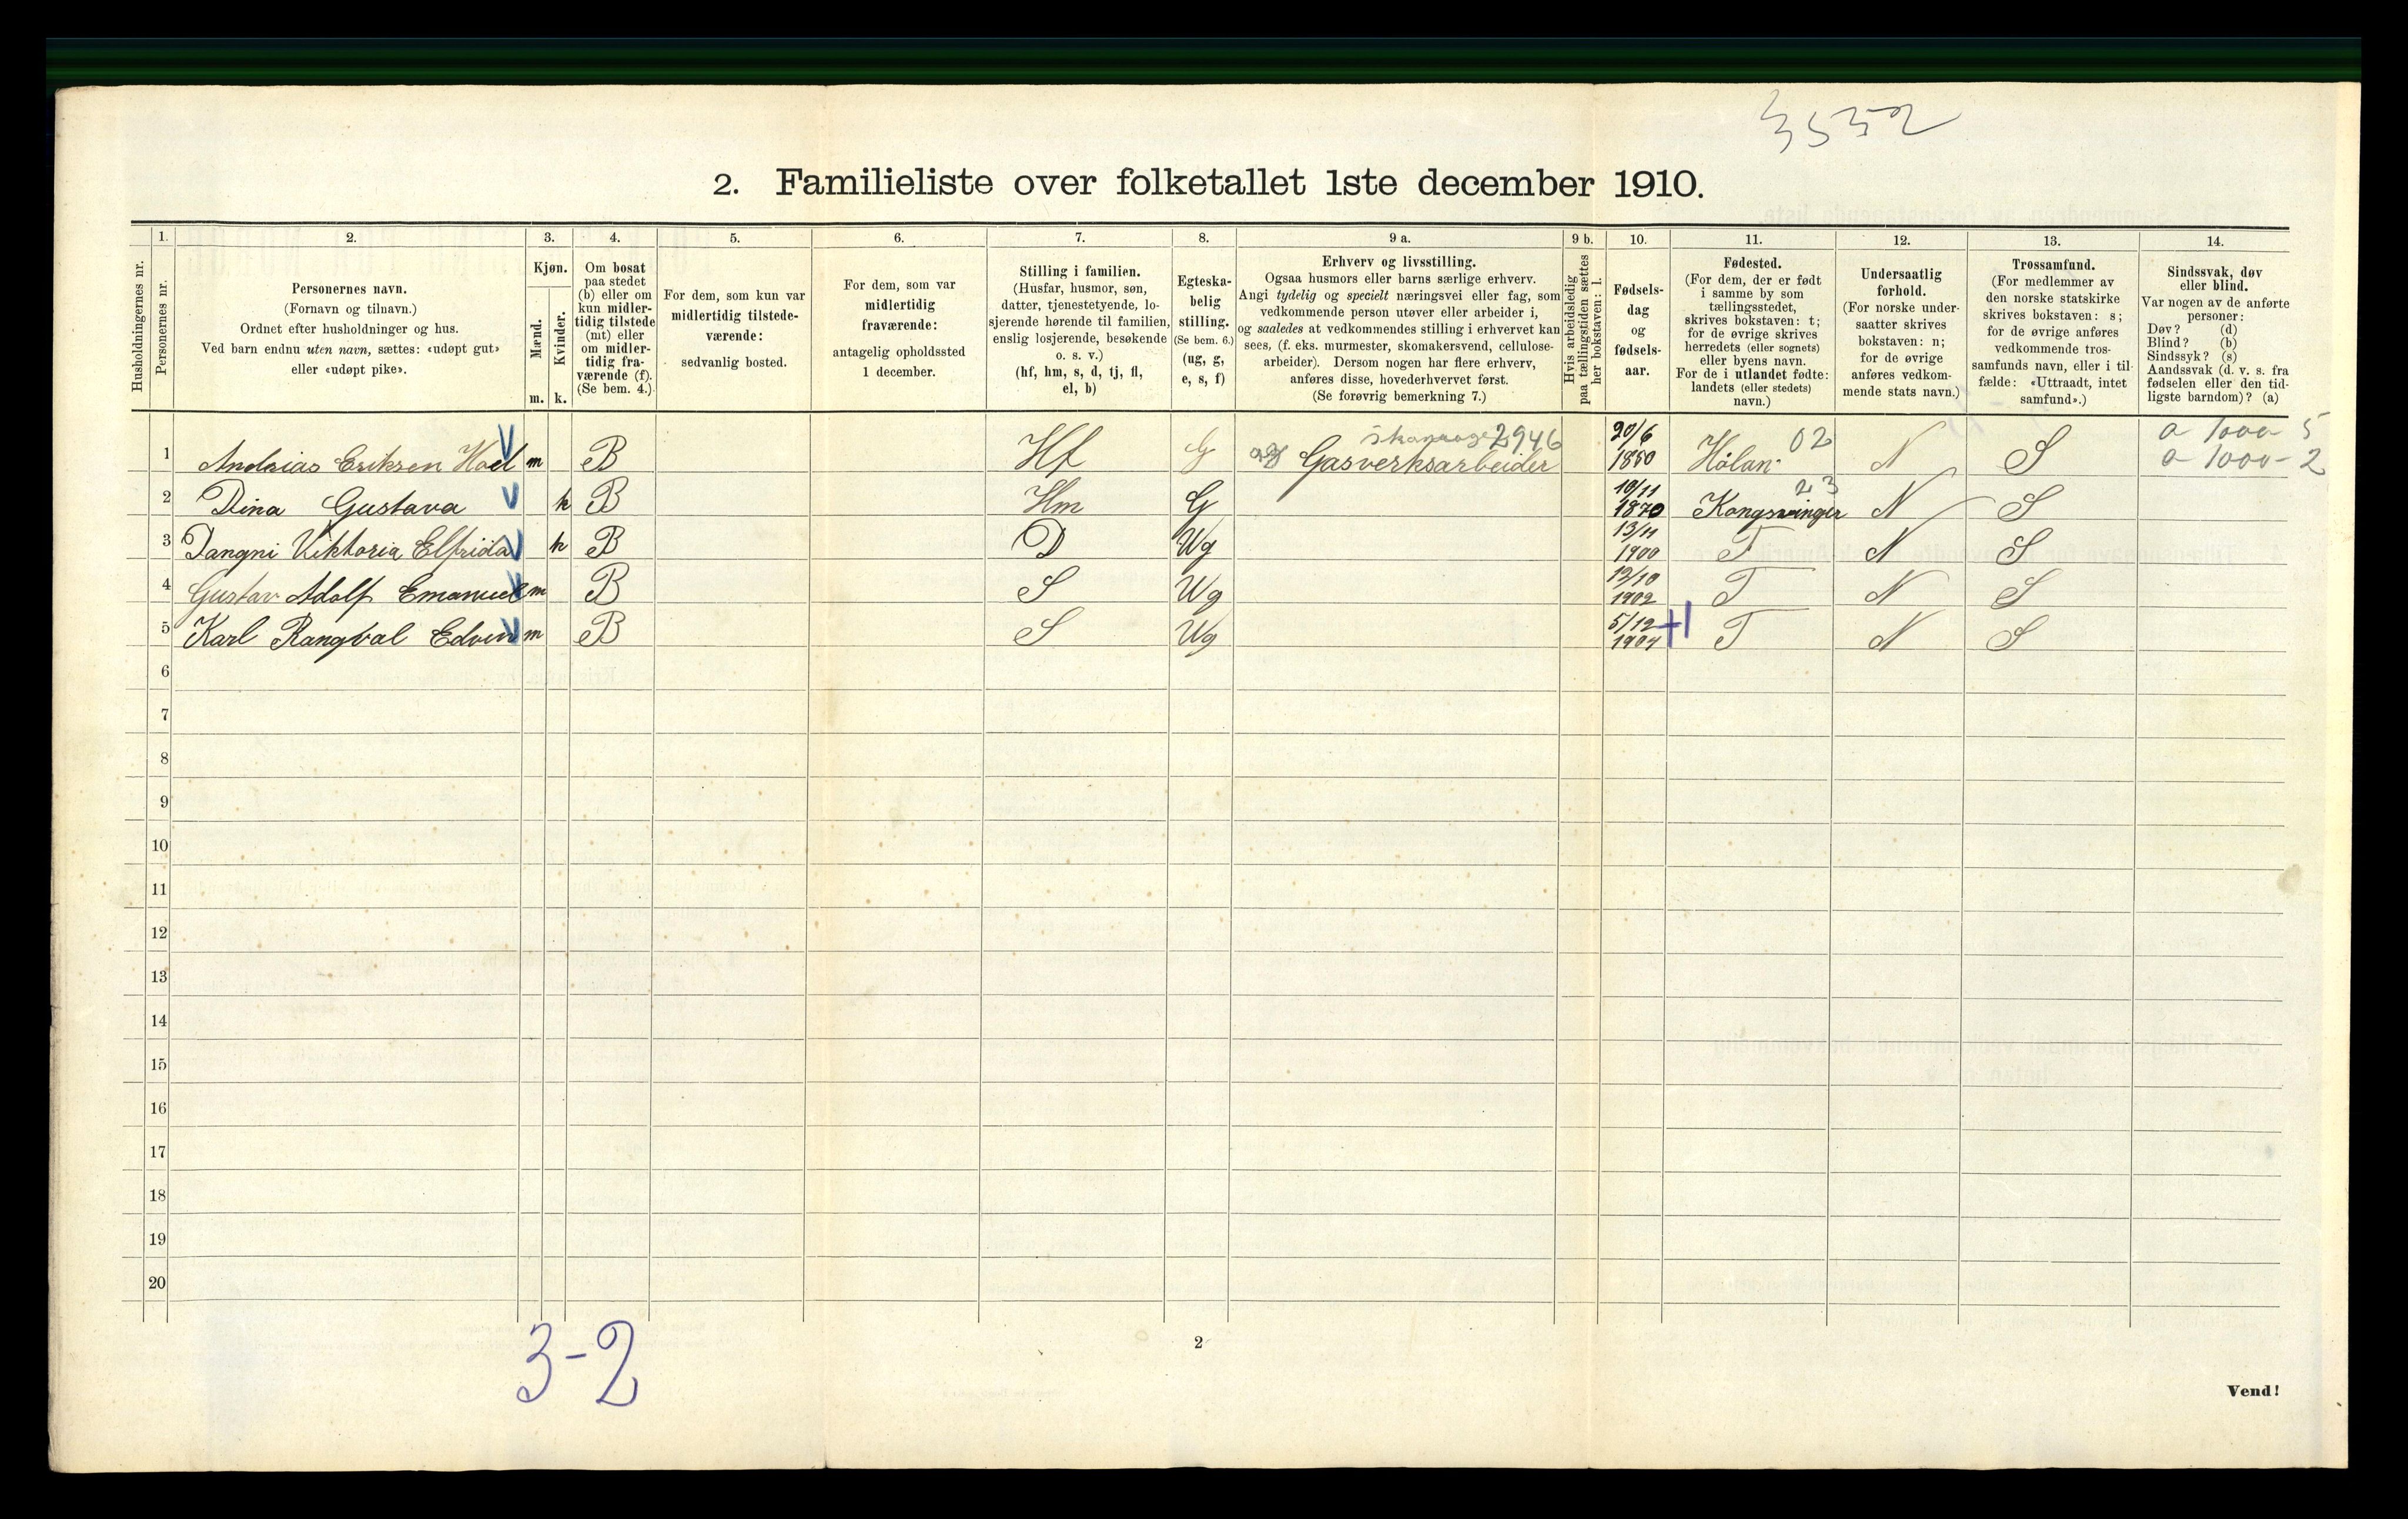 3532
2. Familieliste over folketallet 1ste december 1910.
1. 2. 3. 4. 5. 6. 7. 8. 9 a. 9 b. 10. 11. 12. 13. 14.
Husholdningernes nr.
Personernes nr.
Personernes navn.
(Fornavn og tilnavn.)
Ordnet efter husholdninger og hus.
Ved barn endnu uten navn, sættes: «udøpt gut»
eller «udøpt pike».
Kjøn.
Mænd.
Kvinder.
m. k.
Om bosat
paa stedet
(b) eller om
kun midler-
tidig tilstede
(mt) eller
om midler-
tidig fra-
værende (f).
(Se bem. 4.)
For dem, som kun var
midlertidig tilstede-
værende:
sedvanlig bosted.
For dem, som var
midlertidig
fraværende:
antagelig opholdssted
1 december.
Stilling i familien.
(Husfar, husmor, søn,
datter, tjenestetyende, lo-
sjerende hørende til familien,
enslig losjerende, besøkende
o. s. v.)
(hf, hm, s, d, tj, fl,
el, b)
Egteska-
belig
stilling.
(Se bem. 6.)
(ug, g,
e, s, f)
Erhverv og livsstilling.
Ogsaa husmors eller barns særlige erhverv.
Angi tydelig og specielt næringsvei eller fag, som
vedkommende person utøver eller arbeider i,
og saaledes at vedkommendes stilling i erhvervet kan
sees, (f. eks. murmester, skomakersvend, cellulose-
arbeider). Dersom nogen har flere erhverv,
anføres disse, hovederhvervet først.
(Se forøvrig bemerkning 7.)
Hvis arbeidsledig
paa tællingstiden sættes
her bokstaven: l.
Fødsels-
dag
og
fødsels-
aar.
Fødested.
(For dem, der er født
i samme by som
tællingsstedet,
skrives bokstaven: t;
for de øvrige skrives
herredets (eller sognets)
eller byens navn.
For de i utlandet fødte:
landets (eller stedets)
navn.)
Undersaatlig
forhold.
(For norske under-
saatter skrives
bokstaven: n;
for de øvrige
anføres vedkom-
mende stats navn.)
Trossamfund.
(For medlemmer av
den norske statskirke
skrives bokstaven: s;
for de øvrige anføres
vedkommende tros-
samfunds navn, eller i til-
fælde: «Uttraadt, intet
samfund».)
Sindssvak, døv
eller blind.
Var nogen av de anførte
personer:
Døv? (d)
Blind? (b)
Sindssyk? (s)
Aandssvak (d. v. s. fra
fødselen eller den tid-
ligste barndom)? (a)
2946 20/6 02 a 1000 5
1 Andreias Eriksen Hoel m B Hf G Gasverksarbeider 1850 Hölan N S a 1000 - 2
2 Dina Gustava k B Hm G 10/11 1870 Kongsvinger 23 N S
3 Dangni Viktoria Elfrida k B D Ug 13/11 1900 T N S
4 Gustav Adolf Emanuel m B S Ug 12/10 1902 T N S
5 Karl Rangval Edvin m B S Ug 5/12 1904 T N S
6
7
8
9
10
11
12
13
14
15
16
17
18
19
20
3-2
2
Vend!